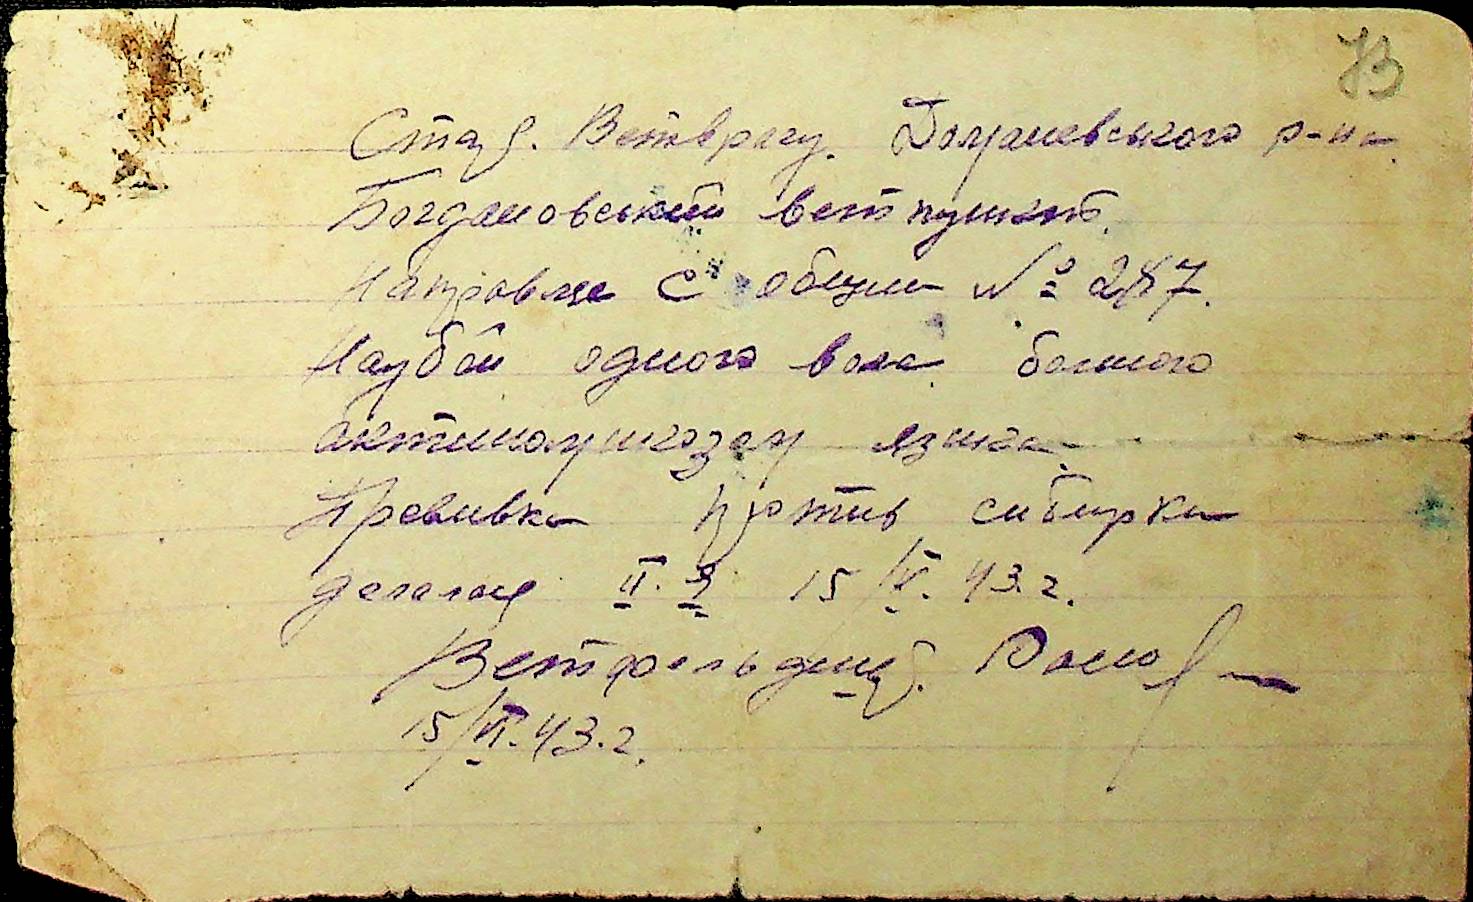 73
Ветврачу. Долманевського р-на.
Богдановський ветпункт.
Направляе с общин № 287.
На убой одного вола больного
актиномикозом язика.
Превивка против сибирки
делалась II. 3 15/V. 43.г.
Ветфельдшер.
15/VI. 43.г.